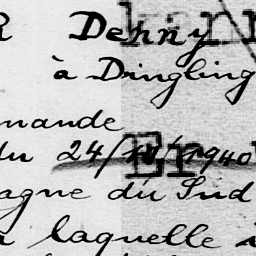 R Denny
à Dingling
mande
du 24/10/1940
agne du Sud
laquelle